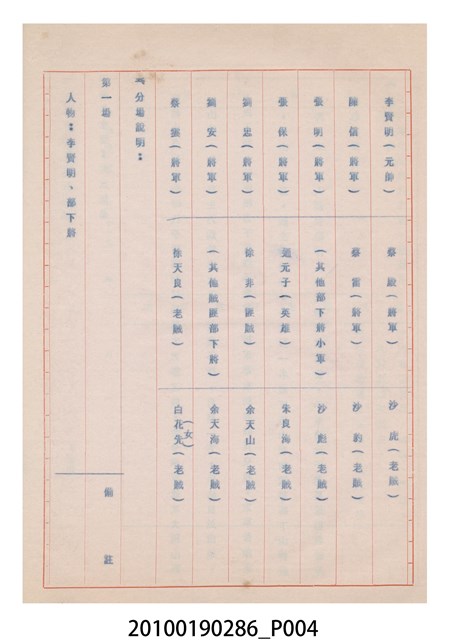 李賢明(元帥)
陳信(將軍)
張明(將軍)
張保(將軍)
劉忠(將軍)
劉安(將軍)
蔡 (將軍)
蔡 (將軍)
蔡雷(將軍)
(其他部下將小軍)
趙元子(英雄)
徐非(匪賊)
(其他賊匪部下將)
徐天良(老賊)
沙虎(老賊)
沙豹(老賊)
沙彪(老賊)
朱良海(老賊)
余天山(老賊)
余天海(老賊)
白花先(老賊)
(女)
分場說明:
第一場
備註
人物:李賢明、部下將
20100190286_P004